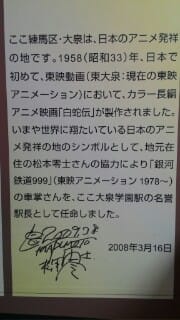 ここ練馬区・大泉は、日本のアニメ発祥
の地です。1958（昭和33）年、日本で
初めて、東映動画（東大泉：現在の東映
アニメーション）において、カラー長編
アニメ映画「白蛇伝」が製作されました。
いまや世界に翔たいている日本のアニ
メ発祥の地のシンボルとして、地元在
住の松本零士さんの協力により「銀河
鉄道999」（東映アニメーション 1978〜）
の車掌さんを、ここ大泉学園駅の名誉
駅長として任命しました。
2008年3月16日